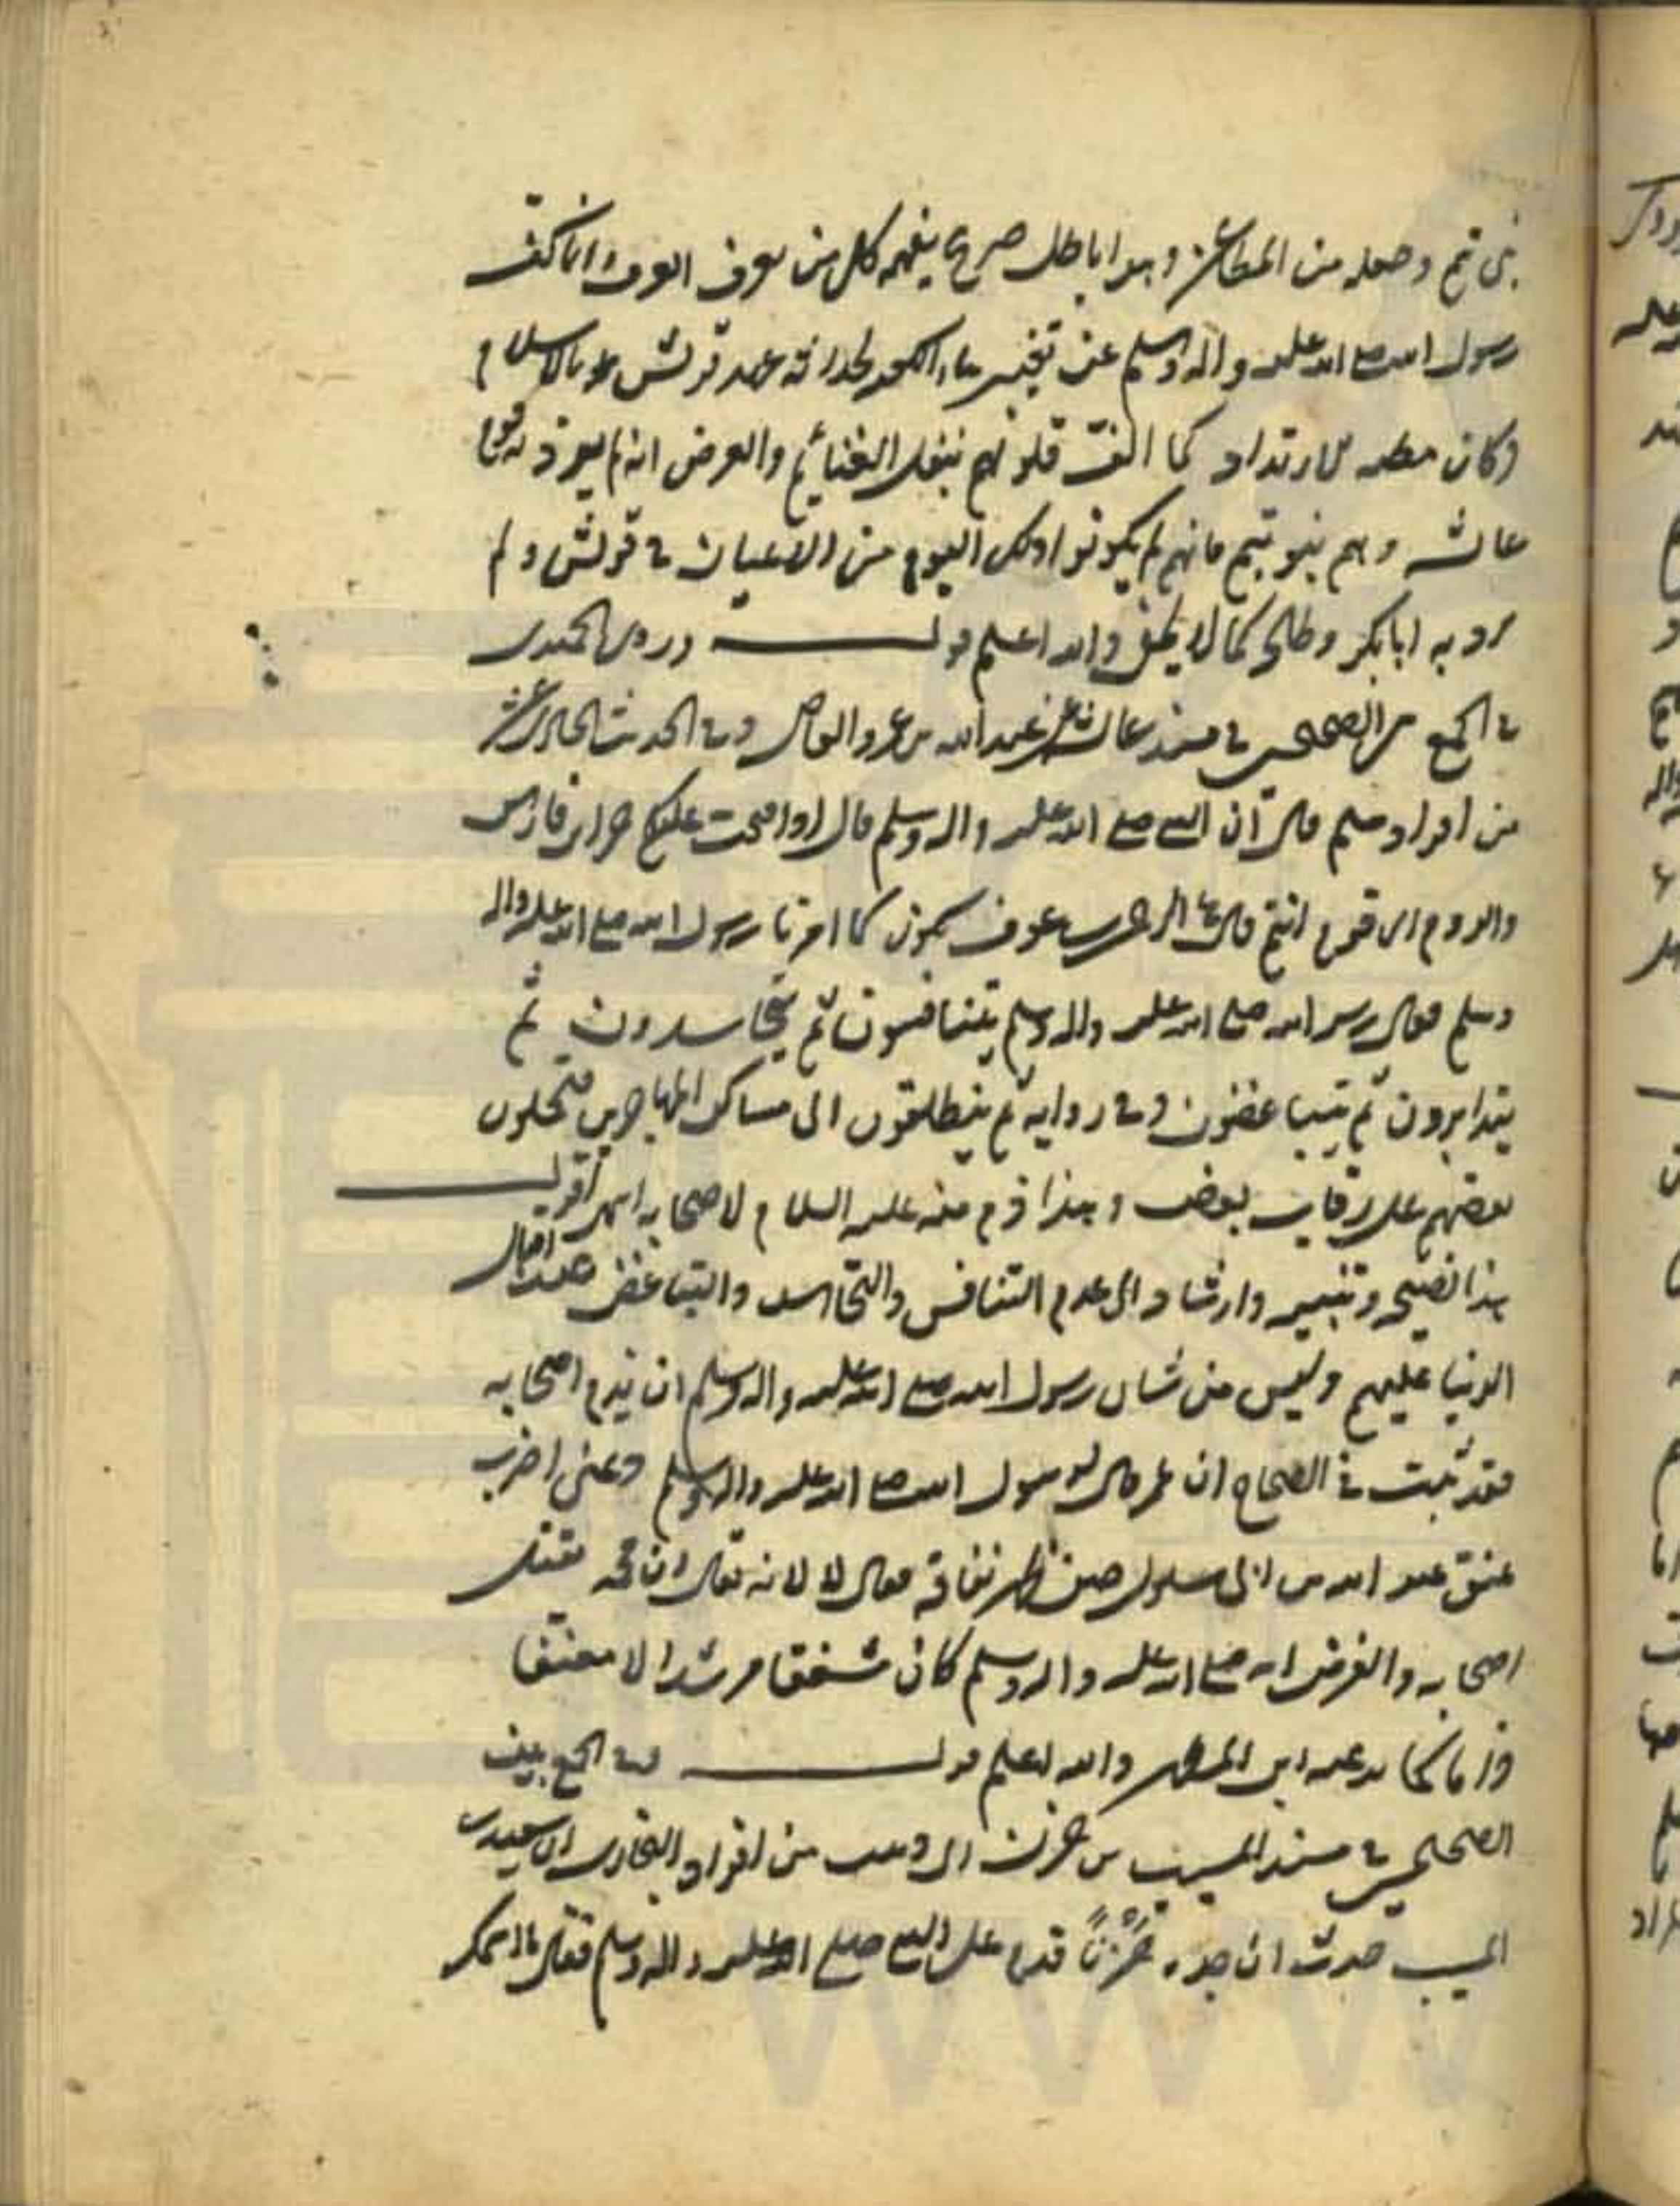 بني تيم وجعله من المطاعن وهذا باطل صريح يفهمه كل من يعرف العرف وانما كف
رسول الله صلى الله عليه وآله وسلم عن تغيير بناء الكعبة لحداثة عهد قريش بالاسلام
وكان مظنة الارتداد كما الفت قلوبهم بنفل الغنائم والغرض انه لم يعرف له قوم
عائشة وهم بنو تيم فانهم لم يكونوا ذلك اليوم من الاعيان في قريش ولم
يرد به ابا بكر وطلحة كما لا يخفى والله اعلم قوله وروى الحميدي
في الجمع بين الصحيحين في مسند عبد الله بن عمرو العاص وفي الحديث الحادي عشر
من افراد مسلم قال ان النبي صلى الله عليه وآله وسلم قال اذا فتحت عليكم خزائن فارس
والروم اي قوم انتم قال عبد الرحمن بن عوف نكون كما امرنا رسول الله صلى الله عليه وآله
وسلم فقال رسول الله صلى الله عليه وآله وسلم تتنافسون ثم تتحاسدون ثم
يتدابرون ثم يتباغضون وفي رواية ثم ينطلقون الى مساكن المهاجرين فتحملون
بعضهم على رقاب بعض وهذا ذم منه عليه السلام لاصحابه انتهى اقول
هذا نصيحة وتنبيه وارشاد الى عدم التنافس والتحاسد والتباغض عند اقبال
الدنيا عليهم وليس من شأن رسول الله صلى الله عليه وآله وسلم ان يذم اصحابه
فقد ثبت في الصحاح ان عمر قال لرسول الله صلى الله عليه وآله وسلم دعني اضرب
عنق عبد الله بن ابي سلول حين ظهر نفاقه فقال لا لانه يقال ان محمد يقتل
اصحابه والغرض انه صلى الله عليه وآله وسلم كان مشفقا مرشدا لا معنفا
وذاما كما يدعيه ابن المطهر والله اعلم قوله وفي الجمع بين
الصحيحين في مسند المسيب بن حزن ابي وهب من افراد البخاري ان سعيد بن
المسيب حدث ان جده حزنا قدم على النبي صلى الله عليه وآله وسلم فقال ما اسمك